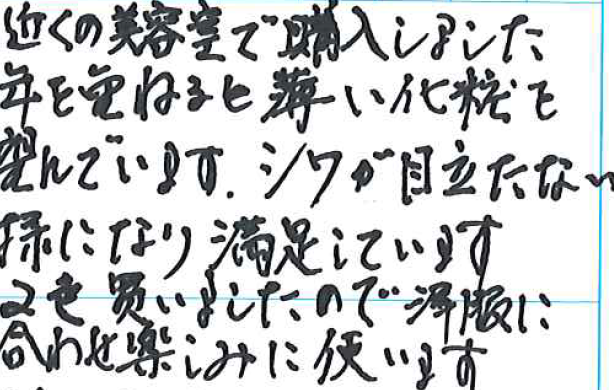 近くの美容室で購入しました
年を重ねると薄い化粧を
望んでいます。シワが目立たない
様になり満足しています
2色買いましたので洋服に
合わせ楽しみに使います